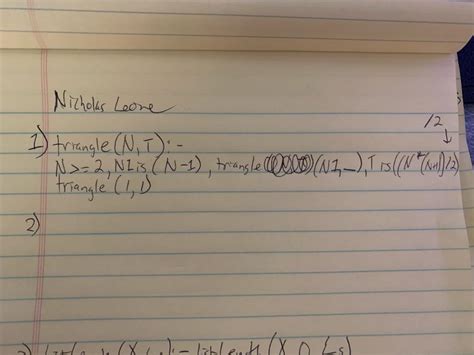 Nicholas Leone
/2
1) triangle(N,T):-
N>=2, N1 is (N-1), triangle (N1,_), T is ((N*(N+1))/2)
triangle (1,1)
2)